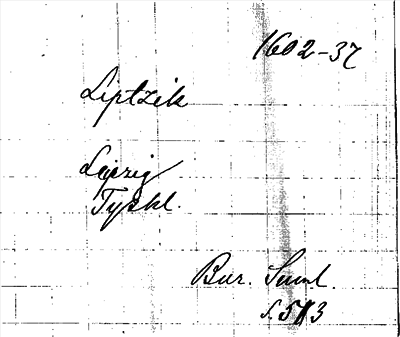 1602-37
Liptzik
Leipzig
Tyskl
Bur. Suml
s. 513